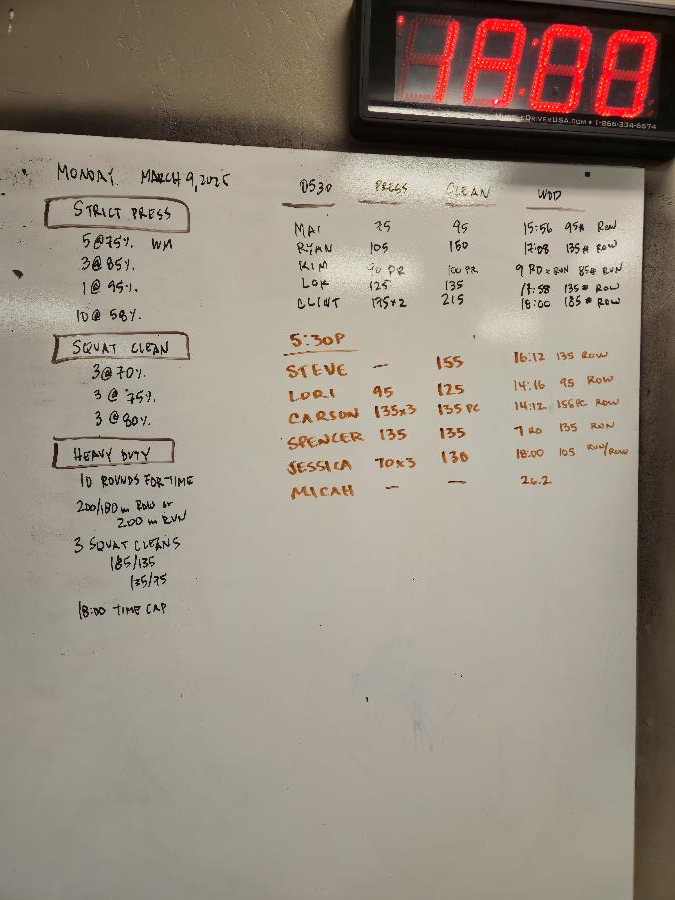 18:00
MuscleDriverUSA.com • 1-866-334-6674
MONDAY MARCH 9, 2025
STRICT PRESS
5@75% WM
3@85%
1@95%
10@58%
SQUAT CLEAN
3@70%
3@75%
3@80%
HEAVY DUTY
10 ROUNDS FOR TIME
200/180m ROW or
200m RUN
3 SQUAT CLEANS
185/135
135/95
18:00 TIME CAP
0530 PRESS CLEAN WOD
MAI 75 95 15:56 95# ROW
RYAN 105 150 17:08 135# ROW
KIM 90 PR 100 PR 9 RD + RUN 85# RUN
LOR 125 135 17:58 135# ROW
CLINT 175x2 215 18:00 185# ROW
5:30P
STEVE — 155 16:12 135 ROW
LORI 95 125 14:16 95 ROW
CARSON 135x3 135 PC 14:12 155PC ROW
SPENCER 135 135 7 RD 135 RUN
JESSICA 70x3 130 18:00 105 RUN/ROW
MICAH — — 26.2